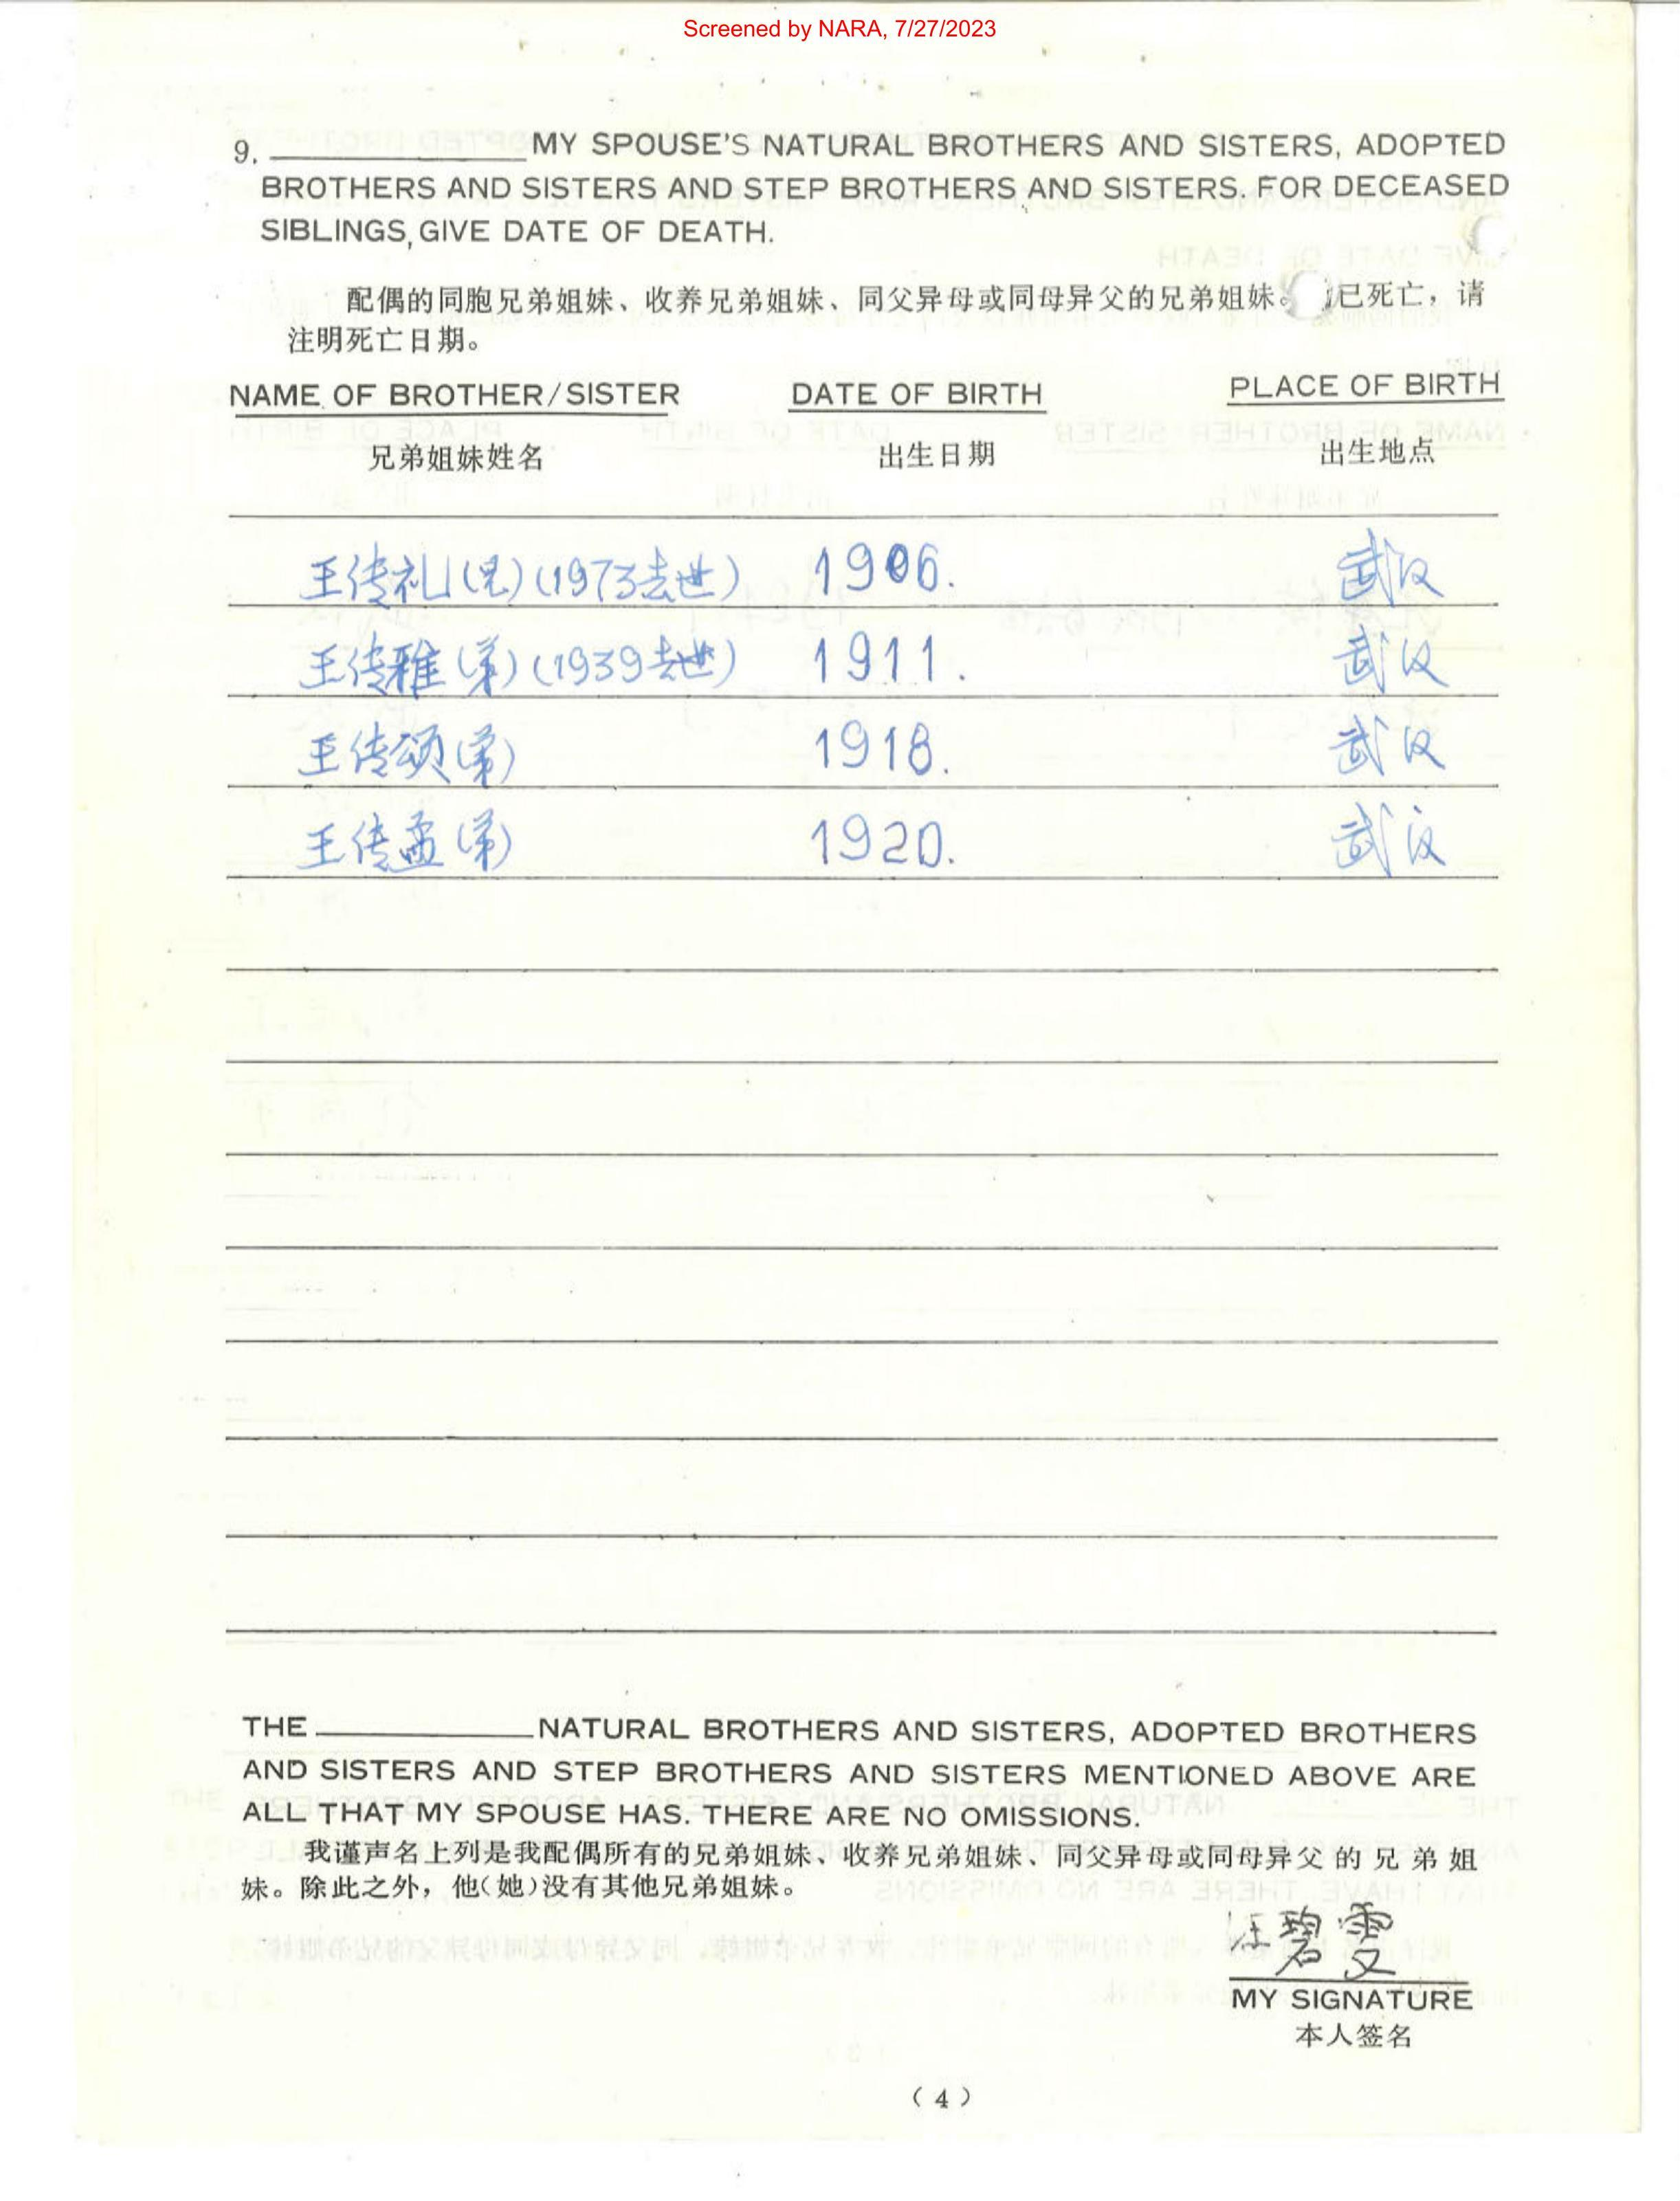 Screened by NARA, 7/27/2023
9. ____________ MY SPOUSE'S NATURAL BROTHERS AND SISTERS, ADOPTED
BROTHERS AND SISTERS AND STEP BROTHERS AND SISTERS. FOR DECEASED
SIBLINGS, GIVE DATE OF DEATH.
配偶的同胞兄弟姐妹、收养兄弟姐妹、同父异母或同母异父的兄弟姐妹。 已死亡，请
注明死亡日期。
NAME OF BROTHER/SISTER DATE OF BIRTH PLACE OF BIRTH
兄弟姐妹姓名 出生日期 出生地点
王传礼(兄)(1973去世) 1906. 武汉
王传雅(弟)(1939去世) 1911. 武汉
王传颂(弟) 1918. 武汉
王传孟(弟) 1920. 武汉
THE ____________ NATURAL BROTHERS AND SISTERS, ADOPTED BROTHERS
AND SISTERS AND STEP BROTHERS AND SISTERS MENTIONED ABOVE ARE
ALL THAT MY SPOUSE HAS. THERE ARE NO OMISSIONS.
我谨声名上列是我配偶所有的兄弟姐妹、收养兄弟姐妹、同父异母或同母异父的兄弟姐
妹。除此之外，他(她)没有其他兄弟姐妹。
汪碧雯
MY SIGNATURE
本人签名
(4)